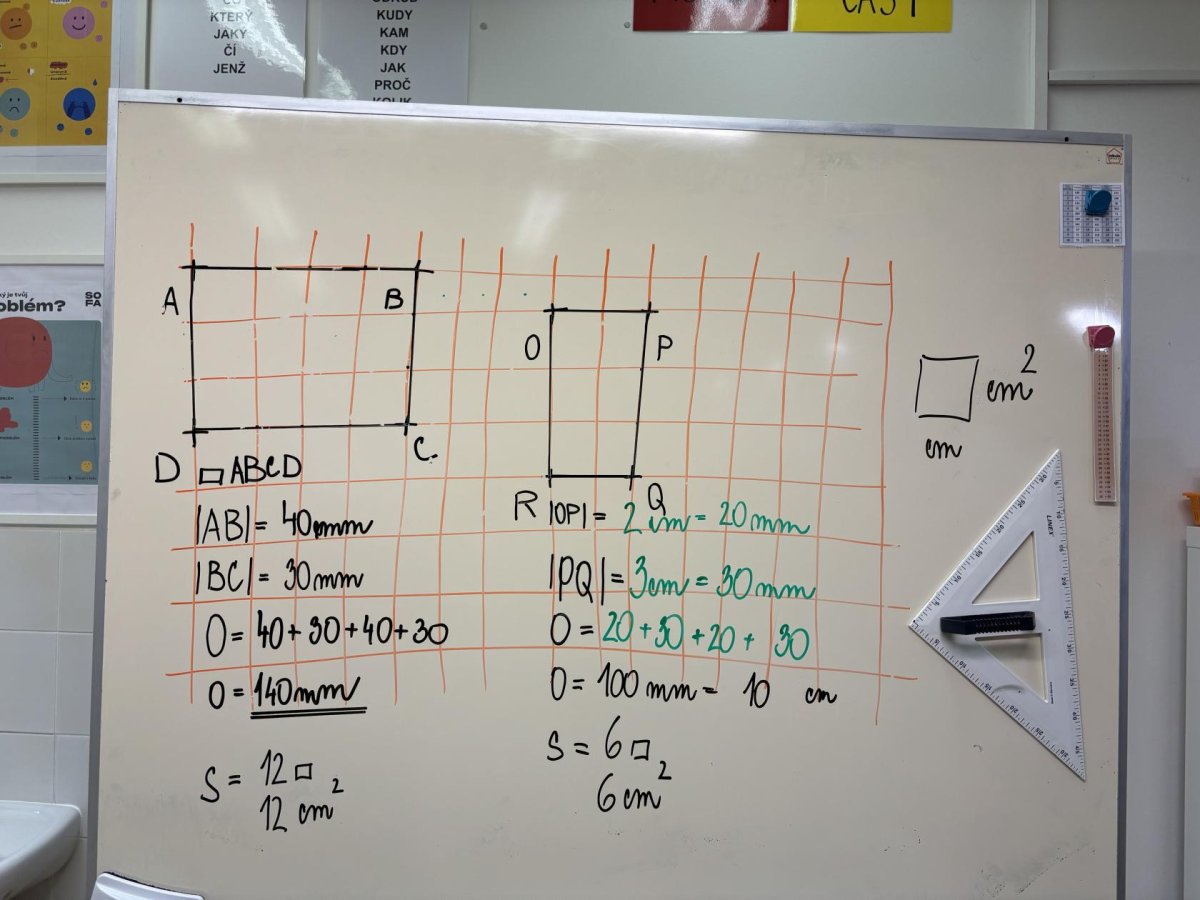 KTERÝ
JAKÝ
ČÍ
JENŽ
KUDY
KAM
KDY
JAK
PROČ
ČÁST
ký je tvůj
oblém?
SO
FA
A
B
C.
D
O
P
R
Q
□ ABCD
|AB| = 40mm
|BC| = 30mm
O = 40+30+40+30
O = 140mm
S = 12 □
12 cm²
|OP| = 2 cm = 20mm
|PQ| = 3cm = 30mm
O = 20+30+20+ 30
O = 100 mm = 10 cm
S = 6 □
6 cm²
cm²
cm
LINEX